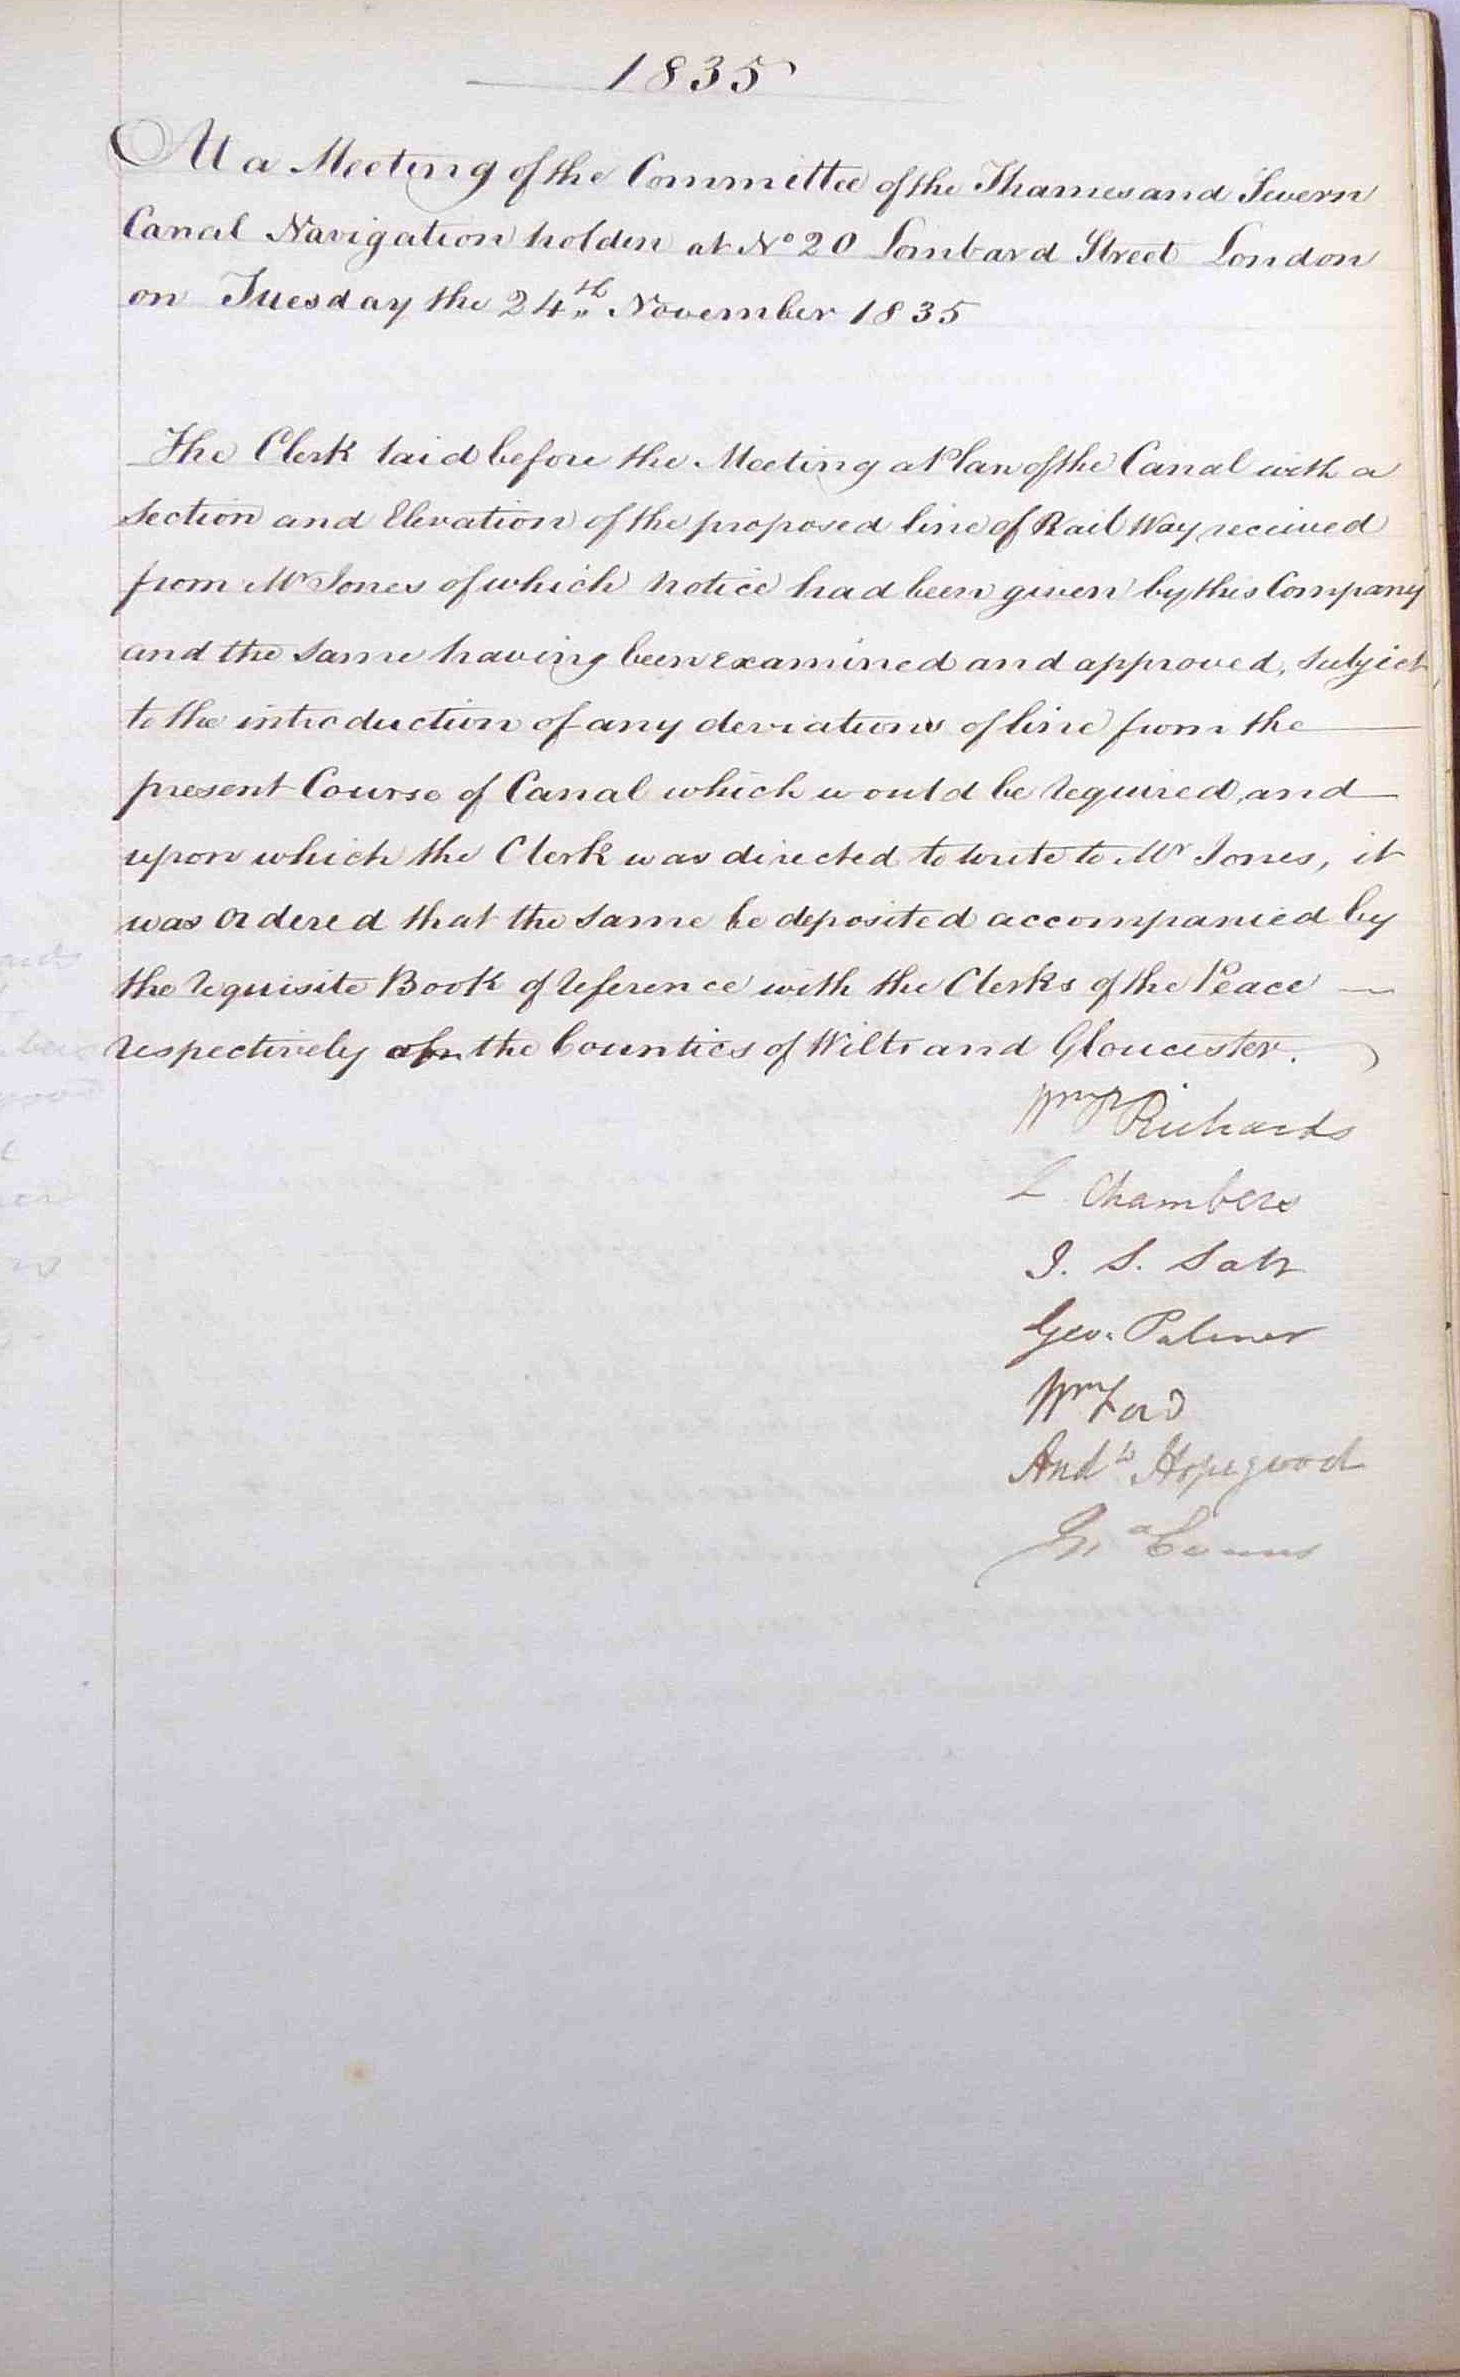 1835
At a Meeting of the Committee of the Thames and Severn
Canal Navigation holden at No 20 Lombard Street London
on Tuesday the 24th November 1835
The Clerk laid before the Meeting a Plan of the Canal with a
Section and Elevation of the proposed line of Rail Way received
from Mr Jones of which notice had been given by this Company
and the same having been examined and approved, subject
to the introduction of any deviations of line from the
present Course of Canal which would be required, and
upon which the Clerk was directed to write to Mr Jones, it
was ordered that the same be deposited accompanied by
the requisite Book of reference with the Clerks of the Peace
respectively for the Counties of Wilts and Gloucester.
Richards
Chambers
J. S. Salt
Geo. Palmer
Wm Ford
Andw Hopegood
Evans